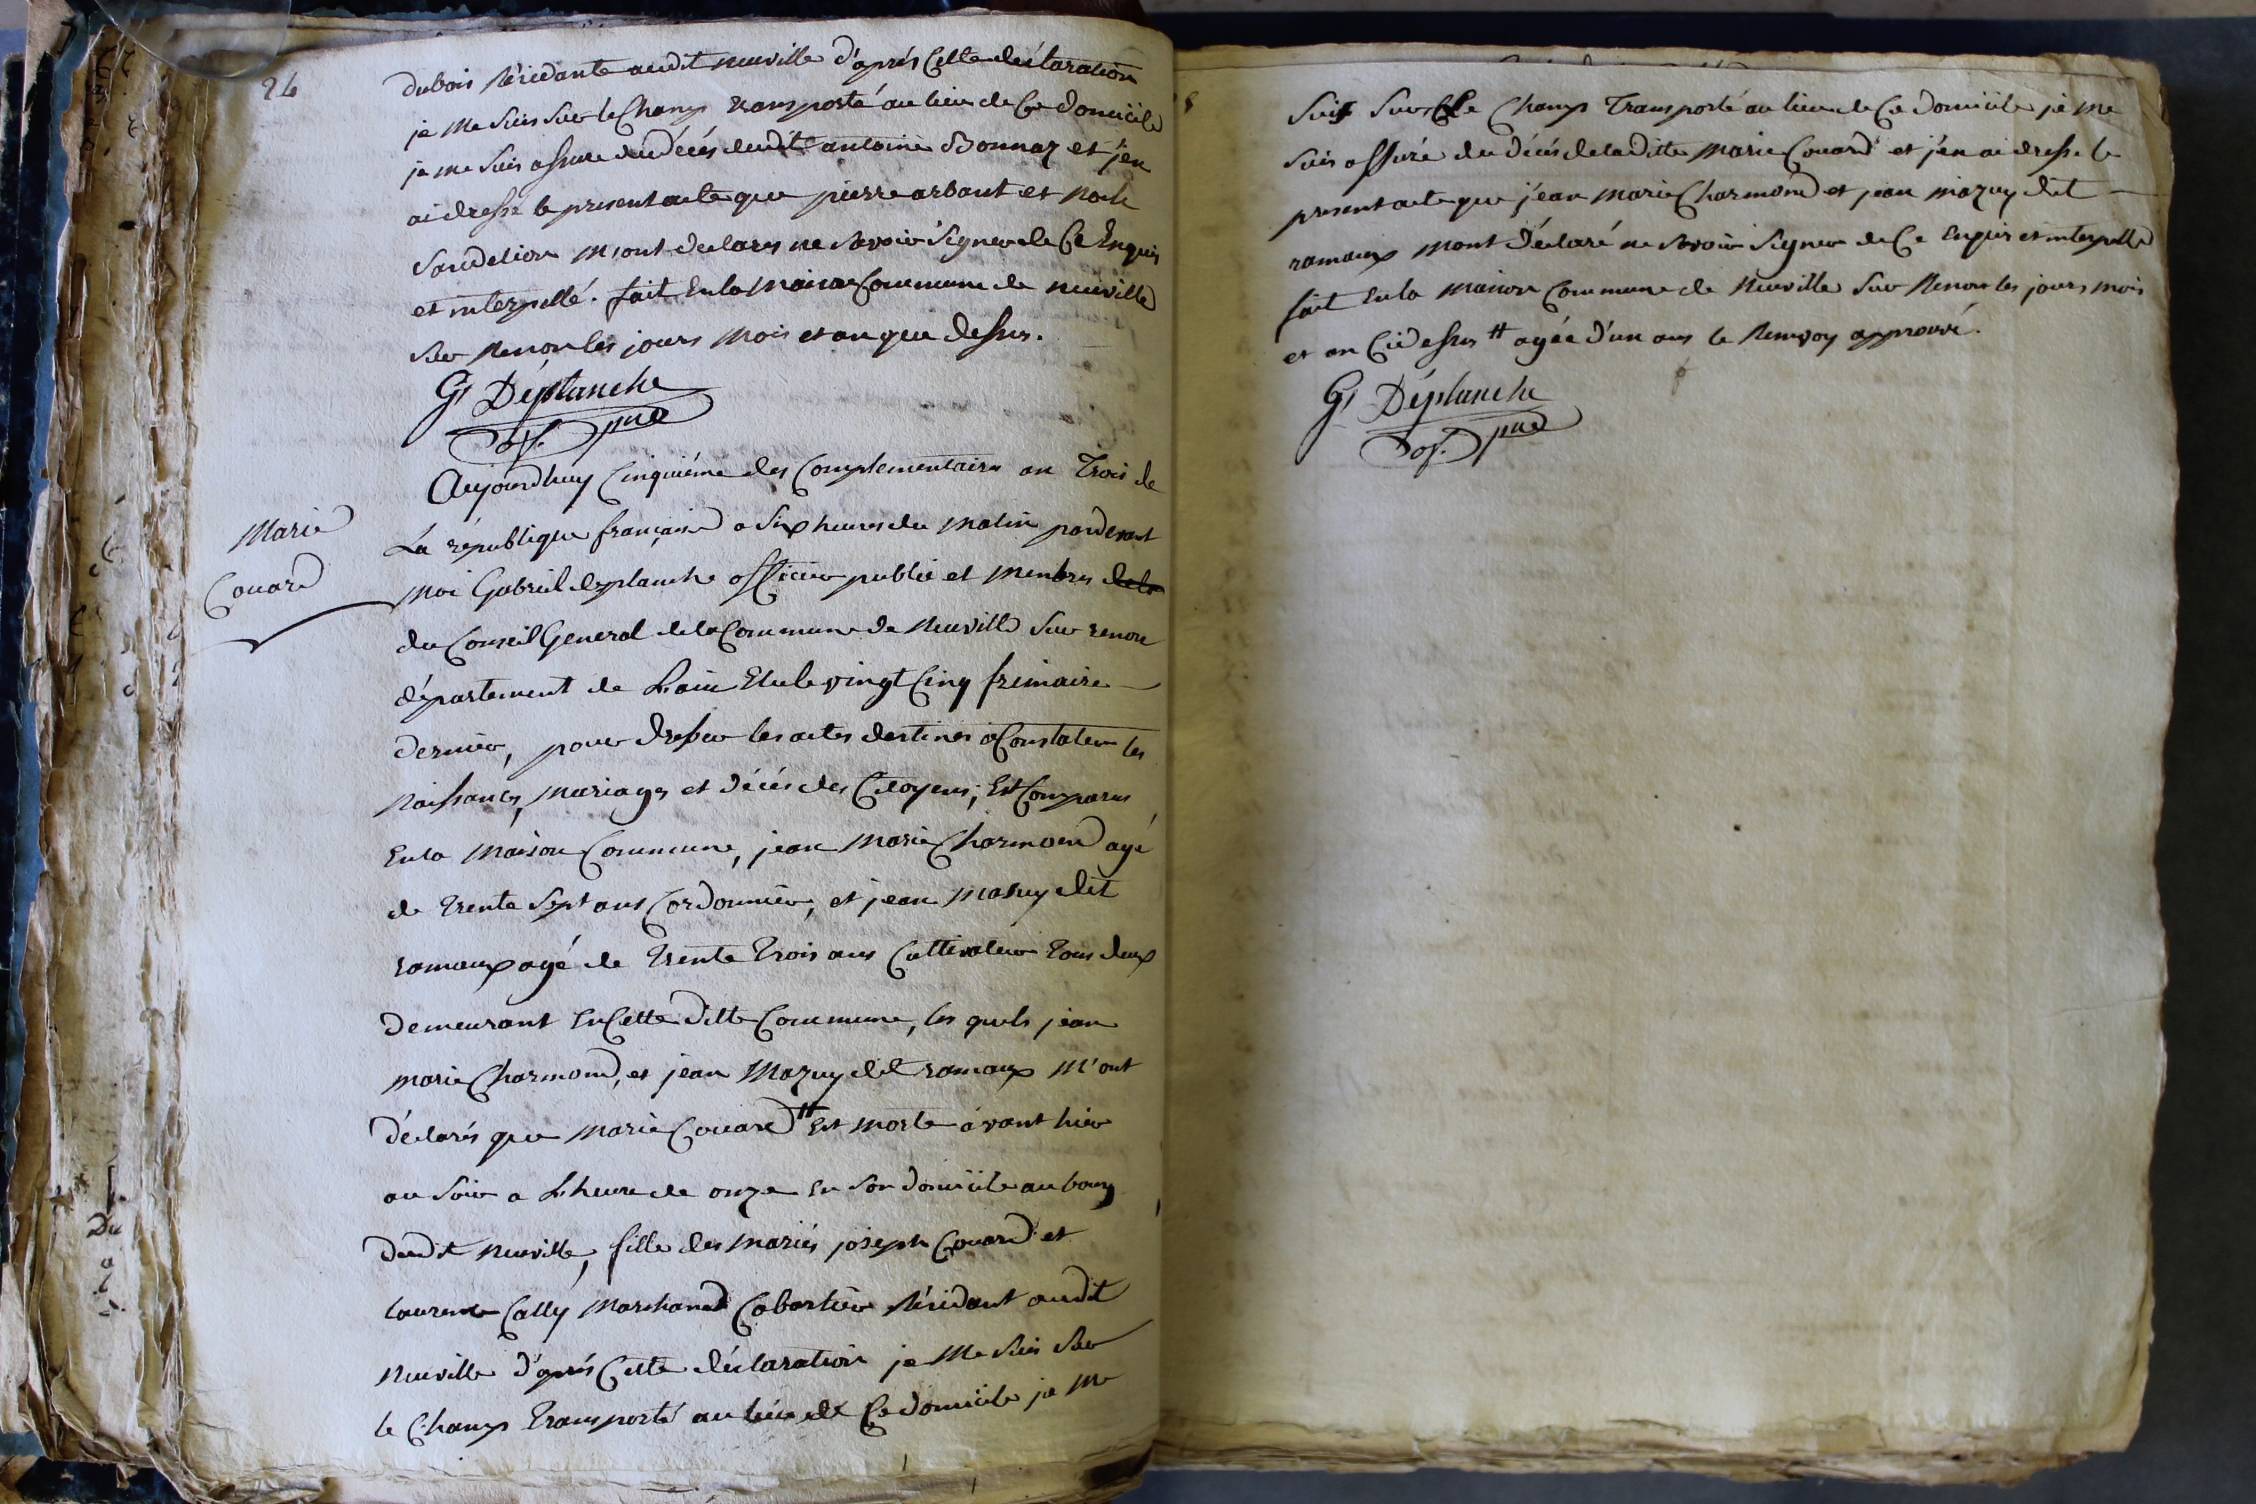 24
dubois Résidante audit neuville d'après Cette déclaration
je me suis sur le Champ transporté au lieu de Ce domicile
je me suis assuré du décés dudit antoine Bonnaz et j'en
ai dressé le present acte que pierre arbant et
m'ont declarés ne savoir signer de Ce Enquis
et interpellé. fait En la Maison Commune de neuville
sur Renon les jours mois et an que dessus.
G Déplanche
off. pue
Aujourdhuy Cinquiéme des Complementaires an Trois de
Marie
Couard
La république française a six heures du matin pardevant
moi Gabriel deplanche officier public et membres dela
du Conseil General de la Commune de Neuville sur renon
département de L'ain Elu le vingt Cinq frimaire
dernier, pour dresser les actes destinés a Constater les
Naissances, mariages et décés des Citoyens; Est Comparus
En la Maison Commune, jean Marie Charmond agé
de trente sept ans Cordonnier, et jean Mazuy dit
ramaux agé de trente trois ans Cultivateur tous deux
demeurant En Cette ditte Commune, les quels jean
marie Charmond, et jean Mazuy dit ramaux m'ont
déclarés que Marie Couard # Est morte avant hier
au soir a L'heure de onze En son domicile au bourg
dudit Neuville, fille des mariés joseph Couard et
laurence Cally Marchand Cabartier Résidant audit
Neuville d'après Cette déclaration je me suis sur
le Champ transporté au lieu de Ce domicile je me
suis sur le Champ Transporté au lieu de Ce domicile je me
suis assuré du décés de laditte Marie Couard et j'en ai dressé le
present acte que jean Marie Charmond et jean mazuy dit
ramaux m'ont déclaré ne savoir signer de Ce Enquis et interpellé
fait En la Maison Commune de Neuville sur Renon les jours mois
et an Cidessus # agée d'un ans le Renvoy approuvé.
G Déplanche
off. pue